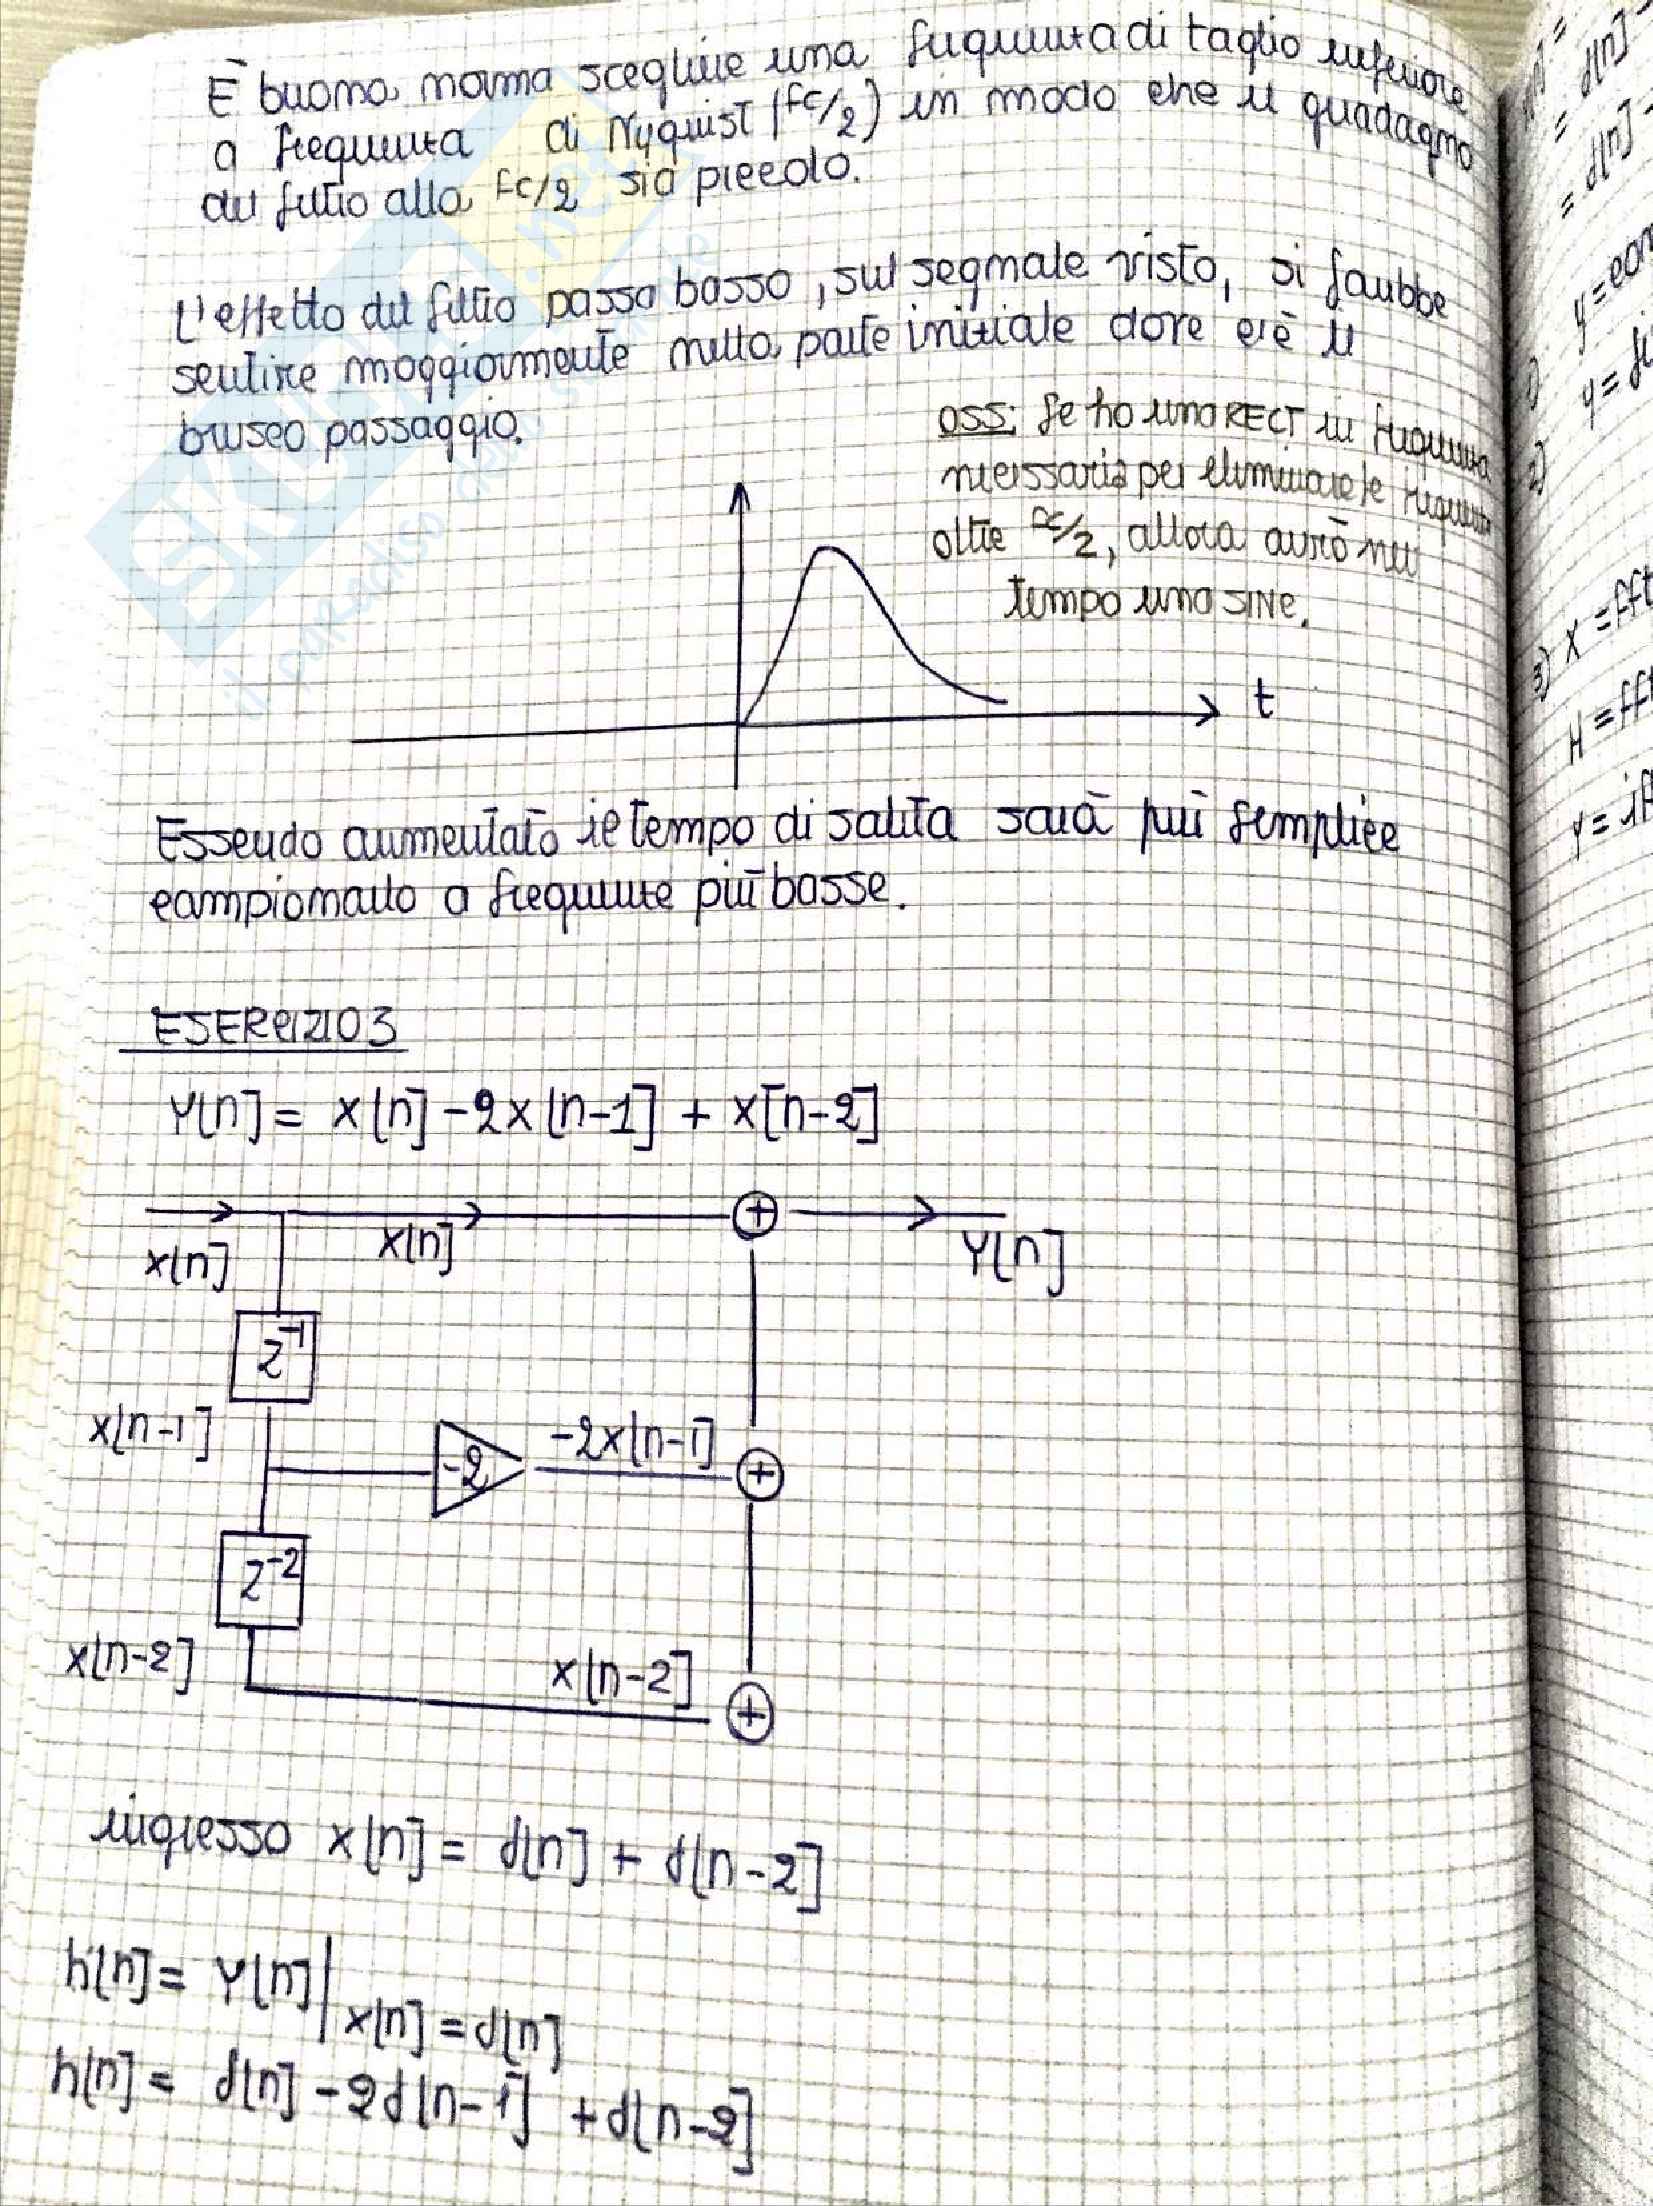 È buona norma scegliere una frequenza di taglio inferiore
a frequenza di Nyquist (fc/2) in modo che il guadagno
del filtro alla fc/2 sia piccolo.
L'effetto del filtro passa basso, sul segnale visto, si farebbe
sentire maggiormente nella parte iniziale dove c'è il
brusco passaggio.
OSS: se ho una RECT in frequenza
necessaria per eliminare le frequenze
oltre fc/2, allora avrò nel
tempo una SINC.
t
Essendo aumentato il tempo di salita sarà più semplice
campionarlo a frequenze più basse.
ESERCIZIO 3
Y[n] = x[n] -2x[n-1] + x[n-2]
x[n]
x[n]
Y[n]
z⁻¹
x[n-1]
-2
-2x[n-1]
z⁻²
x[n-2]
x[n-2]
ingresso x[n] = d[n] + d[n-2]
h[n] = Y[n]|x[n] = d[n]
h[n] = d[n] -2d[n-1] + d[n-2]
= d[n]
= d[n]
1)
2)
3) X = fft
H = fft
SKUOLA.net
il paradiso dello studente